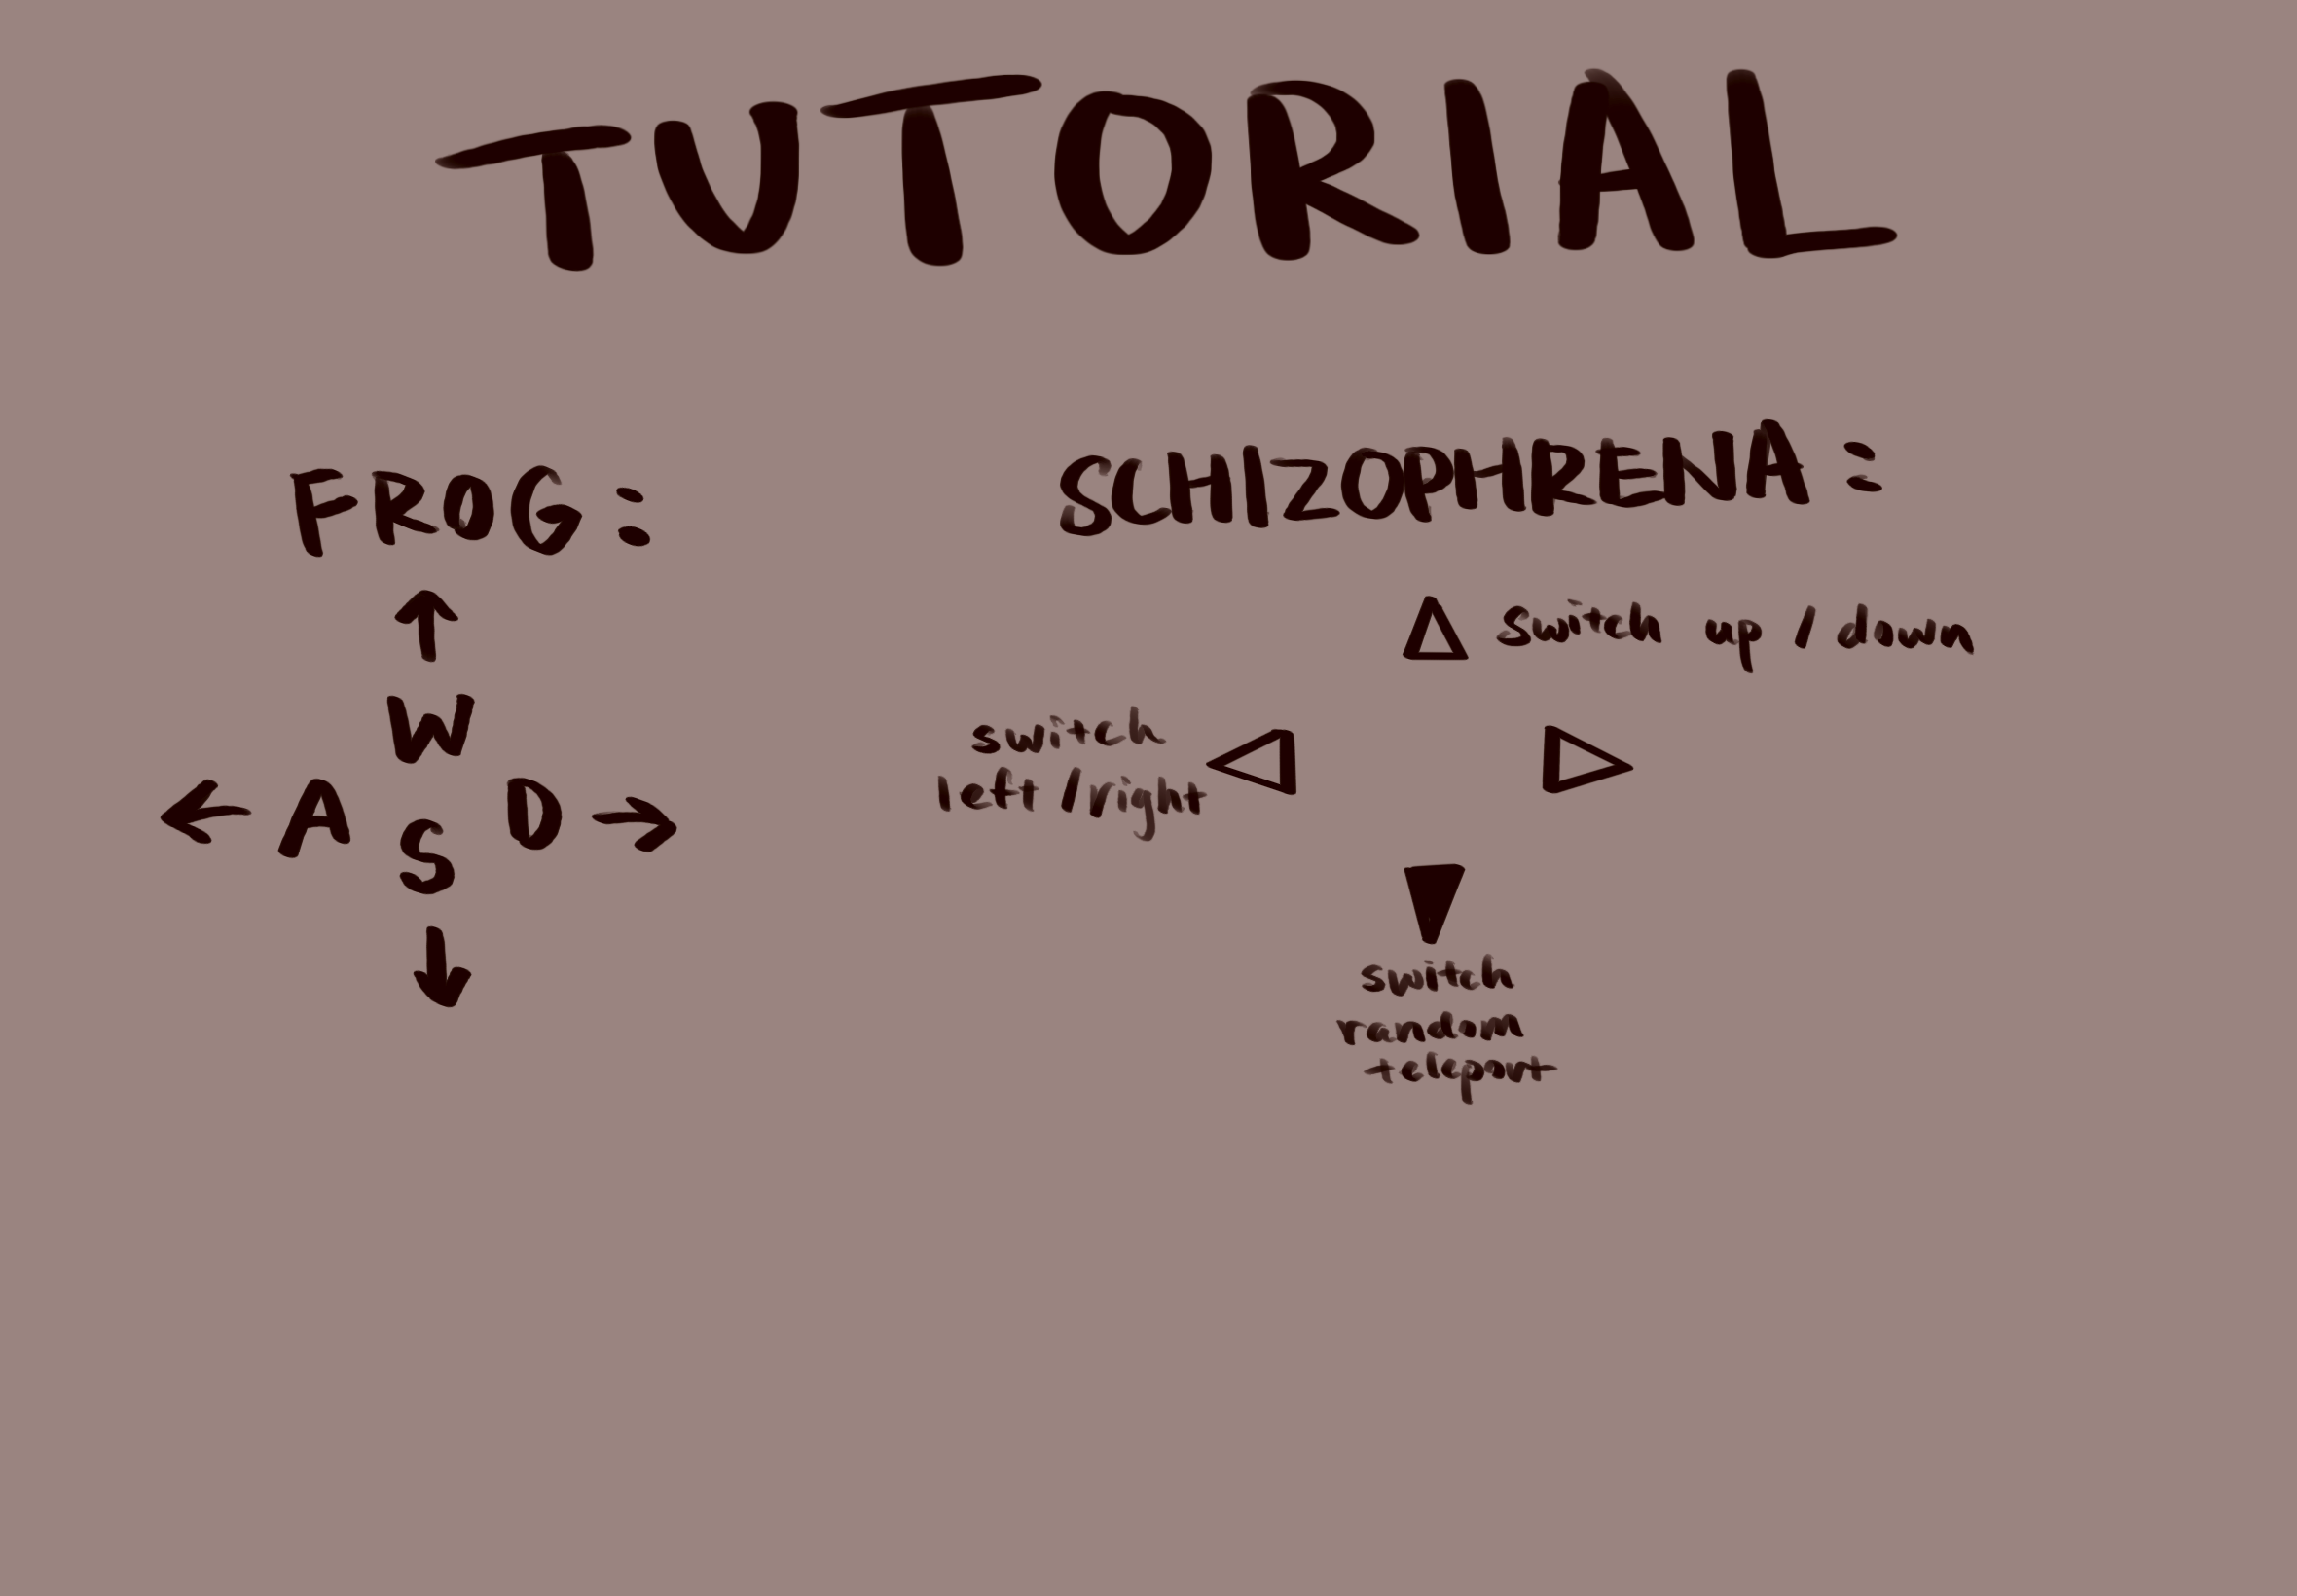 TUTORIAL
FROG:
W
A D
S
SCHIZOPHRENA:
switch up / down
switch
left / right
switch
random
teleport